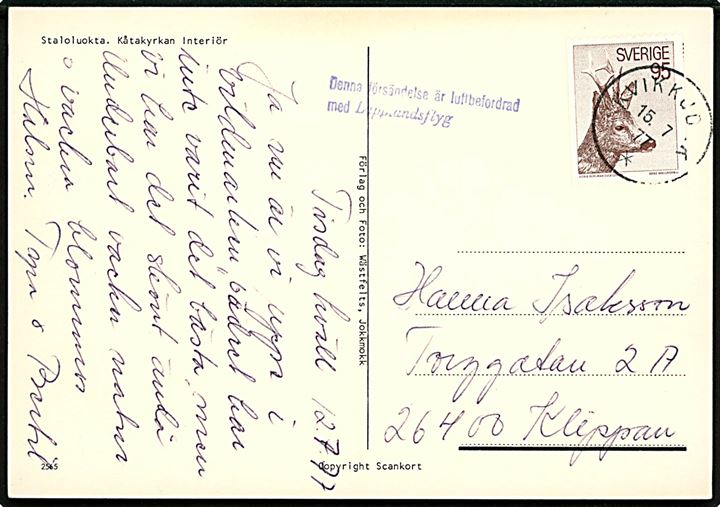 Staloluokta. Kåtakyrkan Interiör
Tisdag kväll 12.7.77
Ja nu är vi uppe i
vildmarken, vädret har
inte varit det bästa, men
vi har det skönt ändå
Underbart vacker natur
o vackra blommor
Hälsn. Bertil
2565
Denna försändelse är luftbefordrad
med Lapplandsflyg
Förlag och Foto: Västfelts, Jokkmokk
Copyright Scankort
SVERIGE
95
KVIKKJOKK
15.7
77
Hanna Isaksson
Torggatan 2 A
264 00 Klippan